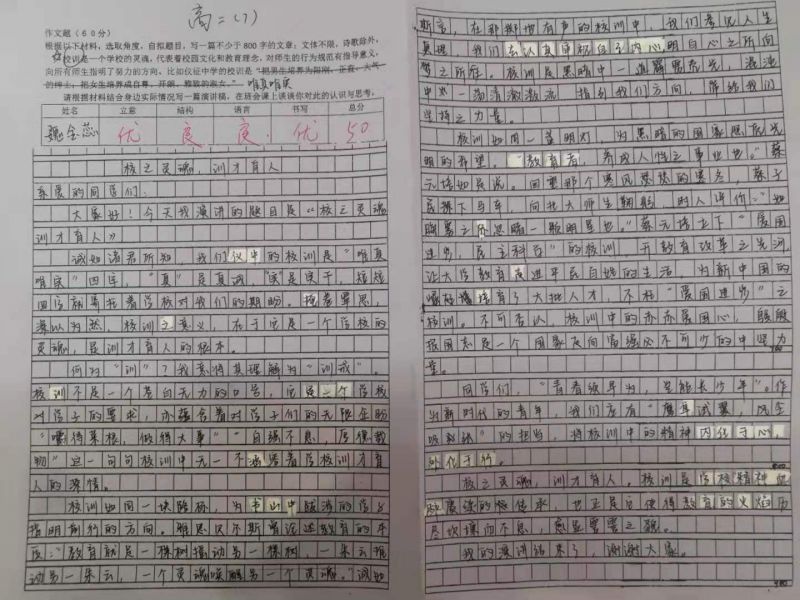 高二(7)
作文题(60分)
根据以下材料,选取角度,自拟题目,写一篇不少于800字的文章;文体不限,诗歌除外。
校训是一个学校的灵魂,代表着校园文化和教育理念,对师生的行为规范有指导意义,
向所有师生指明了努力的方向。比如仪征中学的校训是“把男生培养为阳刚、正直、大气
的绅士,把女生培养成自尊、开朗、雅致的淑女。”唯真唯实
请根据材料结合身边实际情况写一篇演讲稿,在班会课上谈谈你对此的认识与思考。
姓名 立意 结构 语言 书写 总分
魏金蕊 优 良 良 优 50
校之灵魂,训才育人
亲爱的同学们:
大家好!今天我演讲的题目是《校之灵魂
训才育人》
诚如诸君所知,我们仪中的校训是“唯真
唯实”四字,“真”是真诚,“实”是实干,短短
四字就寄托着学校对我们的期盼。
深以为然,校训之意义,在于它是一个学校的
灵魂,是训才育人的根本。
何为“训”?我素将其理解为“训诫”。
校训不是一个苍白无力的口号,它是一个学校
对学子的要求,亦蕴含着对学子们的无限企盼
“嚼得菜根,做得大事”“自强不息,厚德载
物”这一句句校训中无一不涵盖着学校训才育
人的深情。
校训如同一块路标,为书山中跋涉的学子
指明前行的方向。雅思贝尔斯曾论述教育的本
质:“教育就是一棵树摇动另一棵树,一朵云推
动另一朵云,一个灵魂唤醒另一个灵魂。”诚如
斯言,在那掷地有声的校训中,我们考见人生
真理,我们去认真审视自己内心,明自心之所向
梦之所在。校训是黑暗中一道耀眼亮光,混沌
中一荡清澈激流,指引我们方向,带给我们
坚持之力量。
校训如同一盏明灯,为黑暗的国家照亮光
明的希望。“教育者,养成人性之事业也。”蔡
元培如是说。回望那个寒风怒焚的寒冬,蔡子
民推下马车,向北大师生鞠躬,时人评价:“如
阴霾之所思暗一颗明星也。”蔡元培立下“爱国
进步,民主科学”的校训,开教育改革之先河,
让大学教育走进平民百姓的生活,为新中国的
培育了大批人才,不枉“爱国进步”之
校训。不可否认,校训中的赤赤爱国心,殷殷
报国志是一个国家走向富强必不可少的中坚力
量。
同学们,“青春须早为,岂能长少年”。作
为新时代的青年,我们应有“鹰隼试翼,风尘
吸张”的担当,将校训中的精神内化于心,
外化于行。
校之灵魂,训才育人。校训是学校精神也
赓续的恒传承,也正是它使得教育的火焰历
尽坎壈而不息,愈显璧璧之强。
我的演讲结束了,谢谢大家。